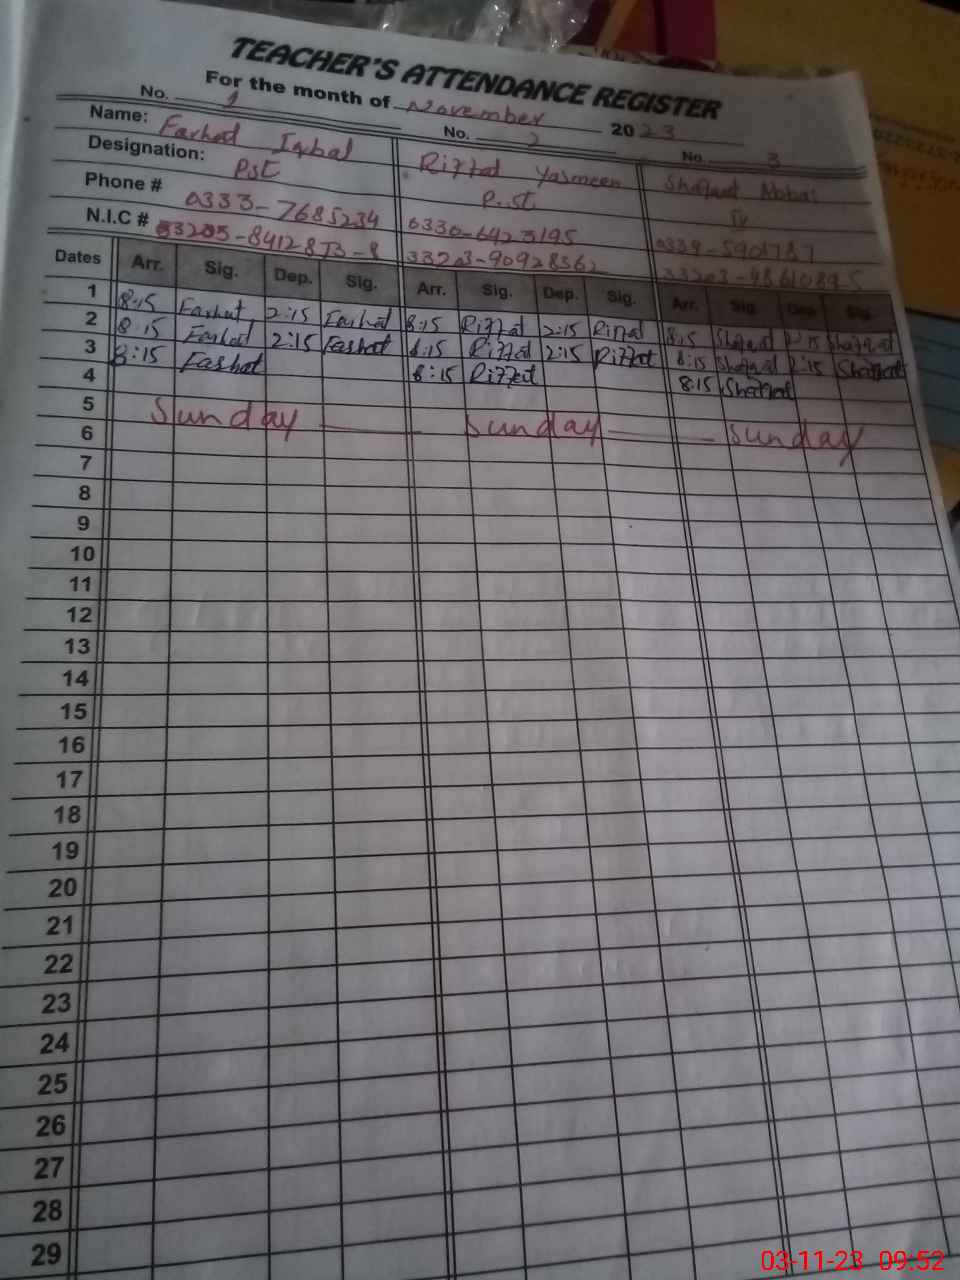 TEACHER'S ATTENDANCE REGISTER
For the month of November 2023
No. 1 No. 2 No. 3
Name: Farhat Iqbal Riffat Yasmeen Shafqat Abbas
Designation: PST P.st IV
Phone # 0333-7685234 0330-6423195
N.I.C #
Dates Arr. Sig. Dep. Sig. Arr. Sig. Dep. Sig. Arr. Sig. Dep. Sig.
1 8:15 Farhat 2:15 Farhat 8:15 Riffat 2:15 Riffat 8:15 Shafqat 2:15 Shafqat
2 8:15 Farhat 2:15 Farhat 8:15 Riffat 2:15 Riffat 8:15 Shafqat 2:15 Shafqat
3 8:15 Farhat 8:15 Riffat 8:15 Shafqat
4
5 Sunday Sunday Sunday
6
7
8
9
10
11
12
13
14
15
16
17
18
19
20
21
22
23
24
25
26
27
28
29
03-11-23 09:52